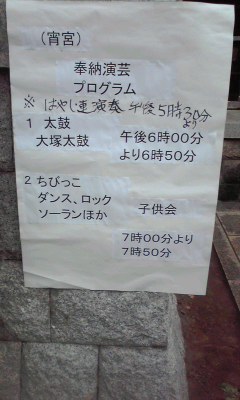 （宵宮）
奉納演芸
プログラム
※ はやし連演奏 午後5時30分
より
1 太鼓
大塚太鼓 午後6時00分
より6時50分
2 ちびっこ
ダンス、ロック
ソーランほか 子供会
7時00分より
7時50分